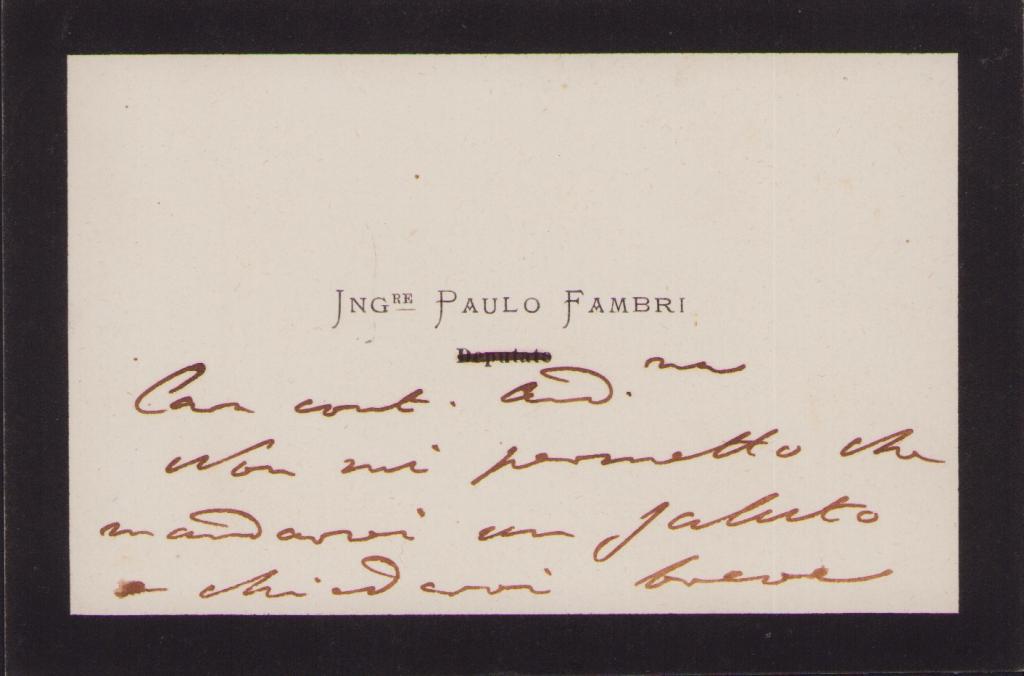 JNGRE PAULO FAMBRI
Deputato
Cara cont. And.ma
Non mi permetto che
mandarvi un saluto
e chiedervi breve